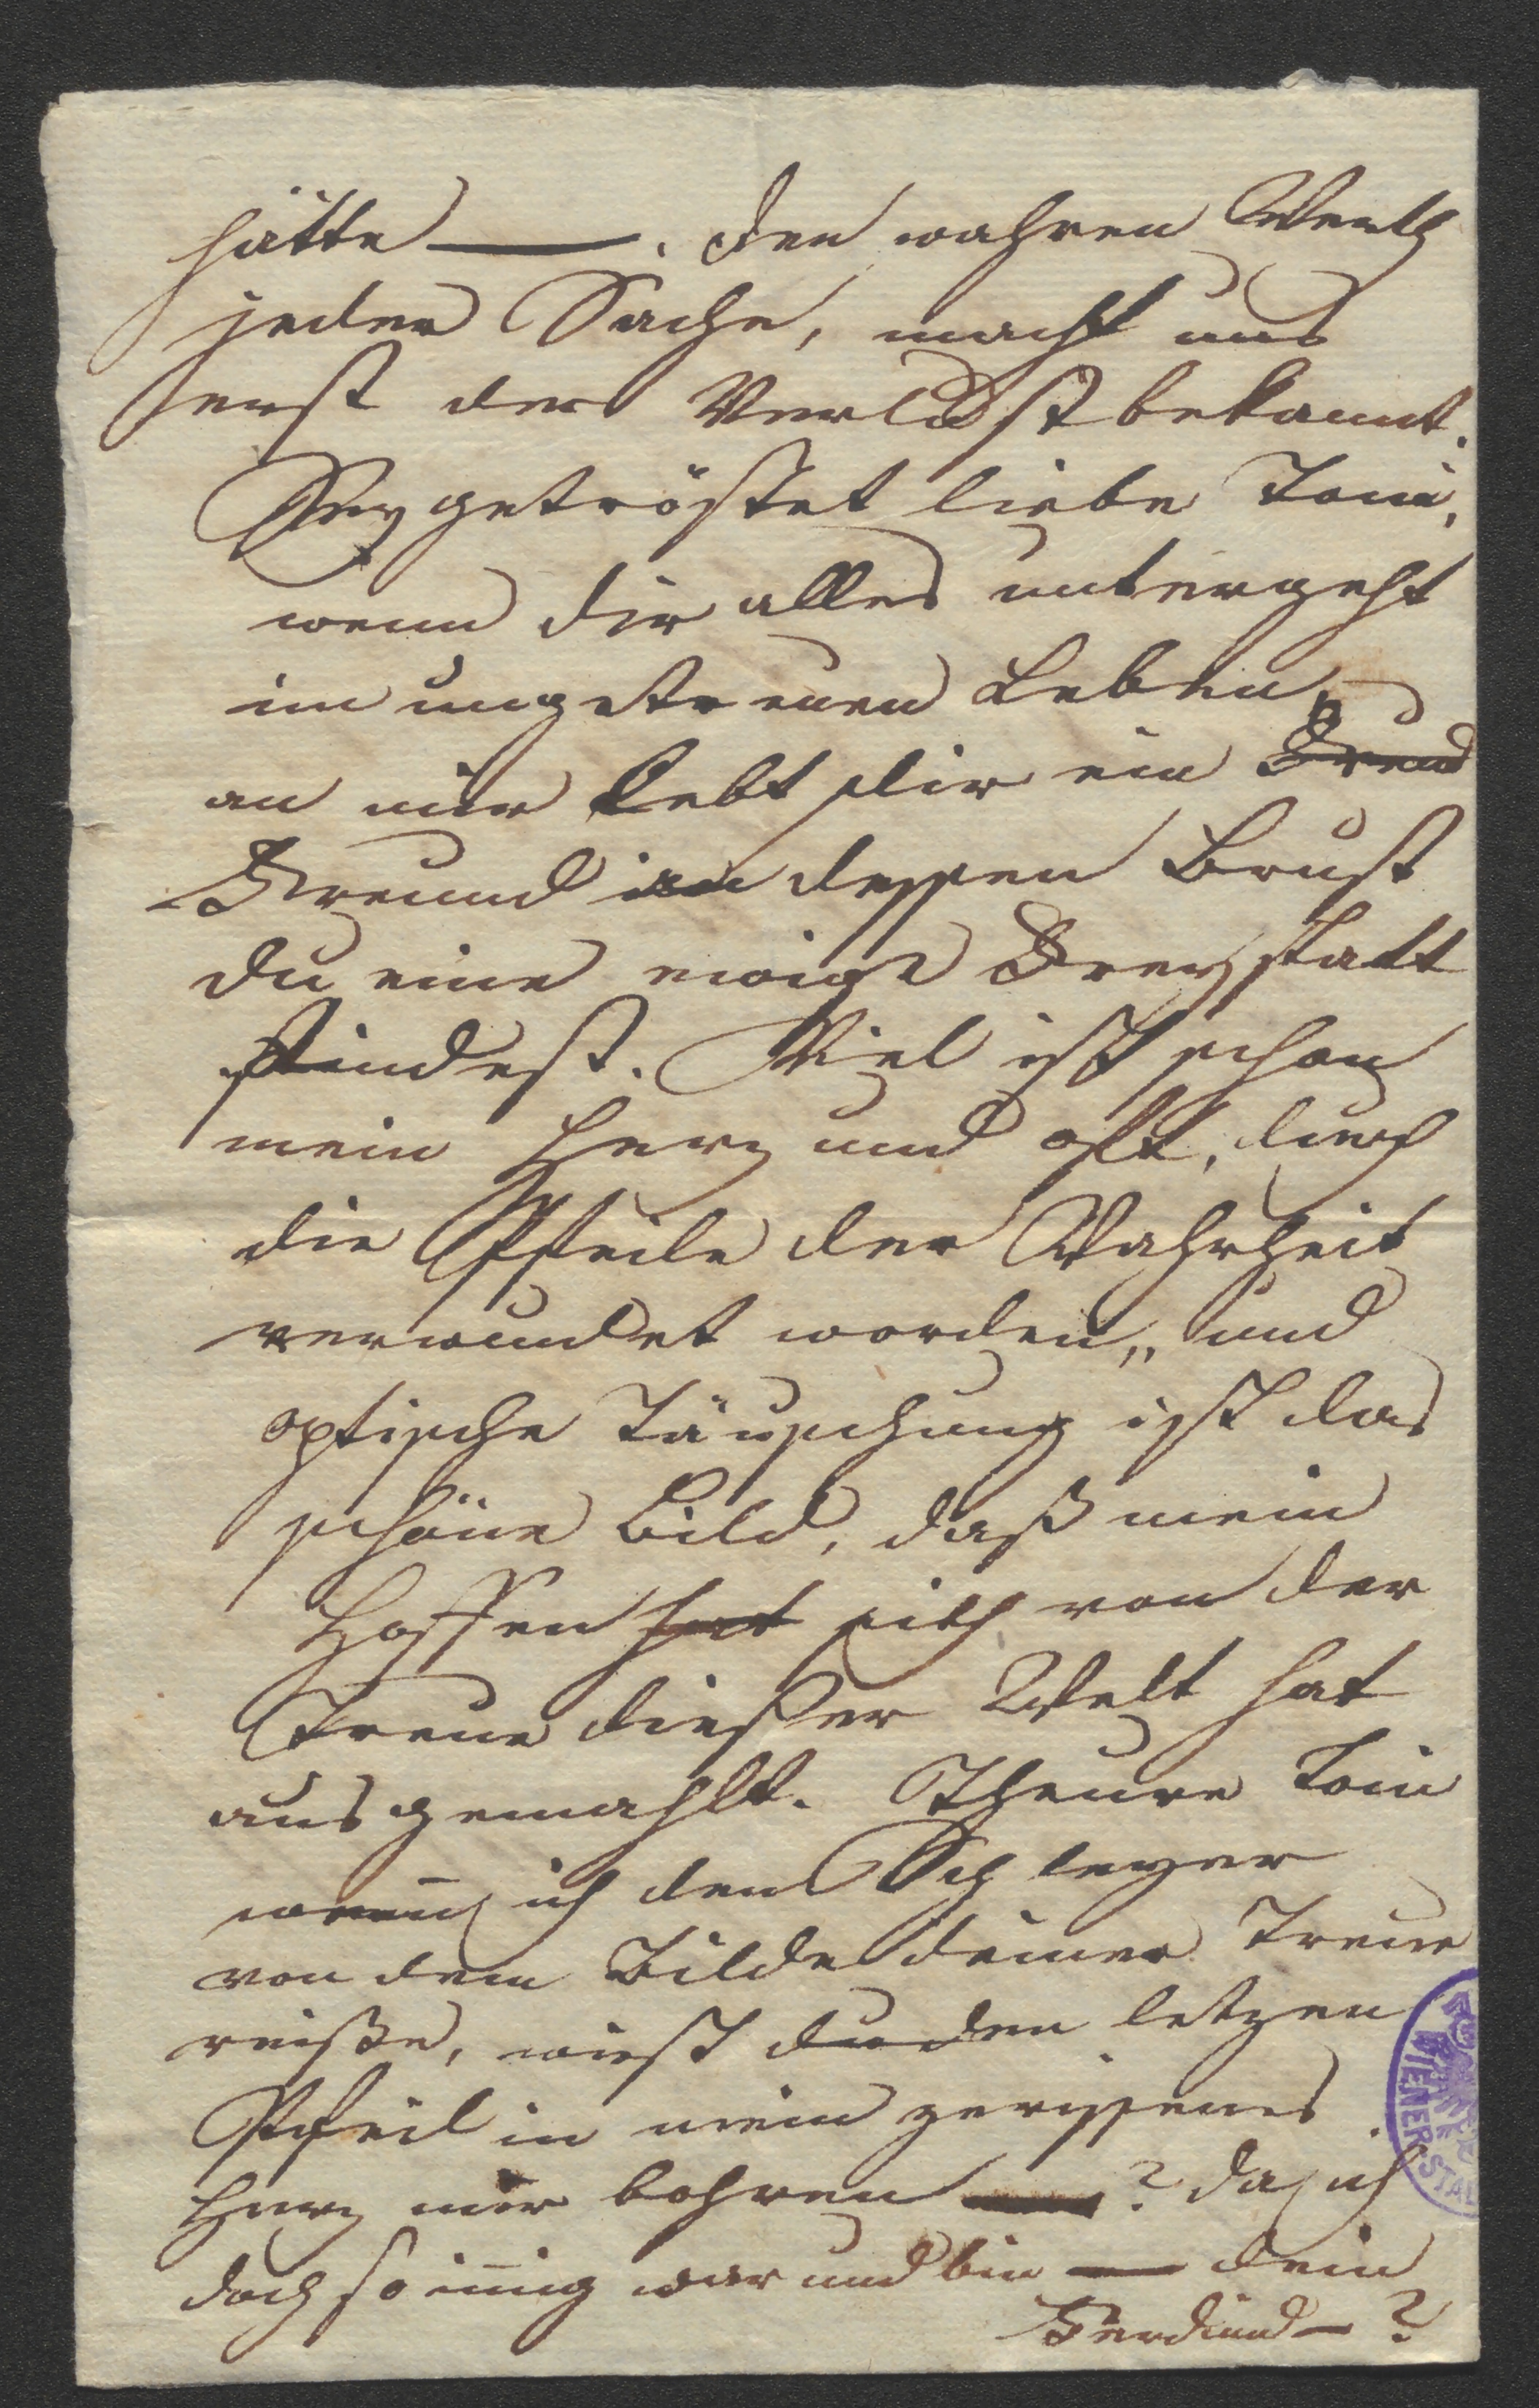 hätte —. den wahren Werth
jeder Sache, macht uns
erst der Verlust bekannt.
Sey getröstet liebe Toni,
wenn dir alles untergeht
im ungetreuen Leben,
an mir lebt dir ein Freud
Freund in dessen Brust
du eine ewige Freystatt
findest. Viel ist schon
mein Herz und oft, durch
die Pfeile der Wahrheit
verwundet worden„ und
optische Täuschung ist das
schöne Bild, daß mein
Hoffen hat sich von der
Treue dießer Welt hat
ausgemahlt. Theure Toni
wenn ich den Schleyer
von dem Bilde deiner Treue
reiße, wirst du den letzen
Pfeil in mein zerissenes
Herz mir bohren —? da ich
doch so innig war und bin — dein
Ferdinand — ?
WIENER STA